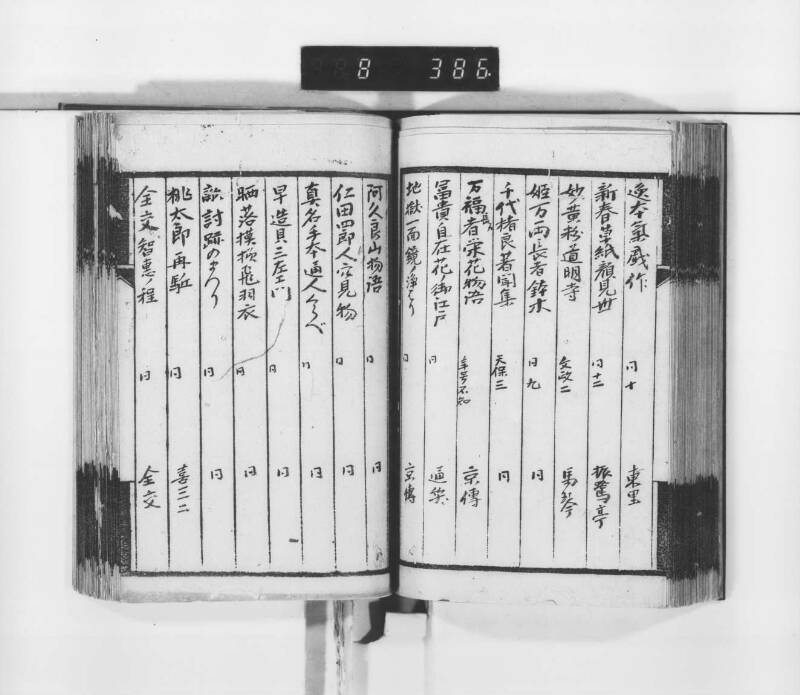 8 386
逸本氣威作 同十 東里
新春草紙顔見世 同十二 振鷺亭
妙黄粉道明寺 文政二 馬琴
姫万両長者鉢木 同九 同
千代楮良著聞集 天保三 同
万福長者栄花物語 年号不知 京傳
冨貴自在花ノ御江戸 同 通笑
地獄一面鏡ノ浄はり 同 京傳
阿久良山物語 同 同
仁田四郎人穴見物 同 同
真名手本通人くらべ 同 同
早造貝三左エ門 同 同
洒落模様飛羽衣 同 同
敵討跡のまつり 同 同
桃太郎再駈 同 喜三二
全交智惠ノ程 同 全交